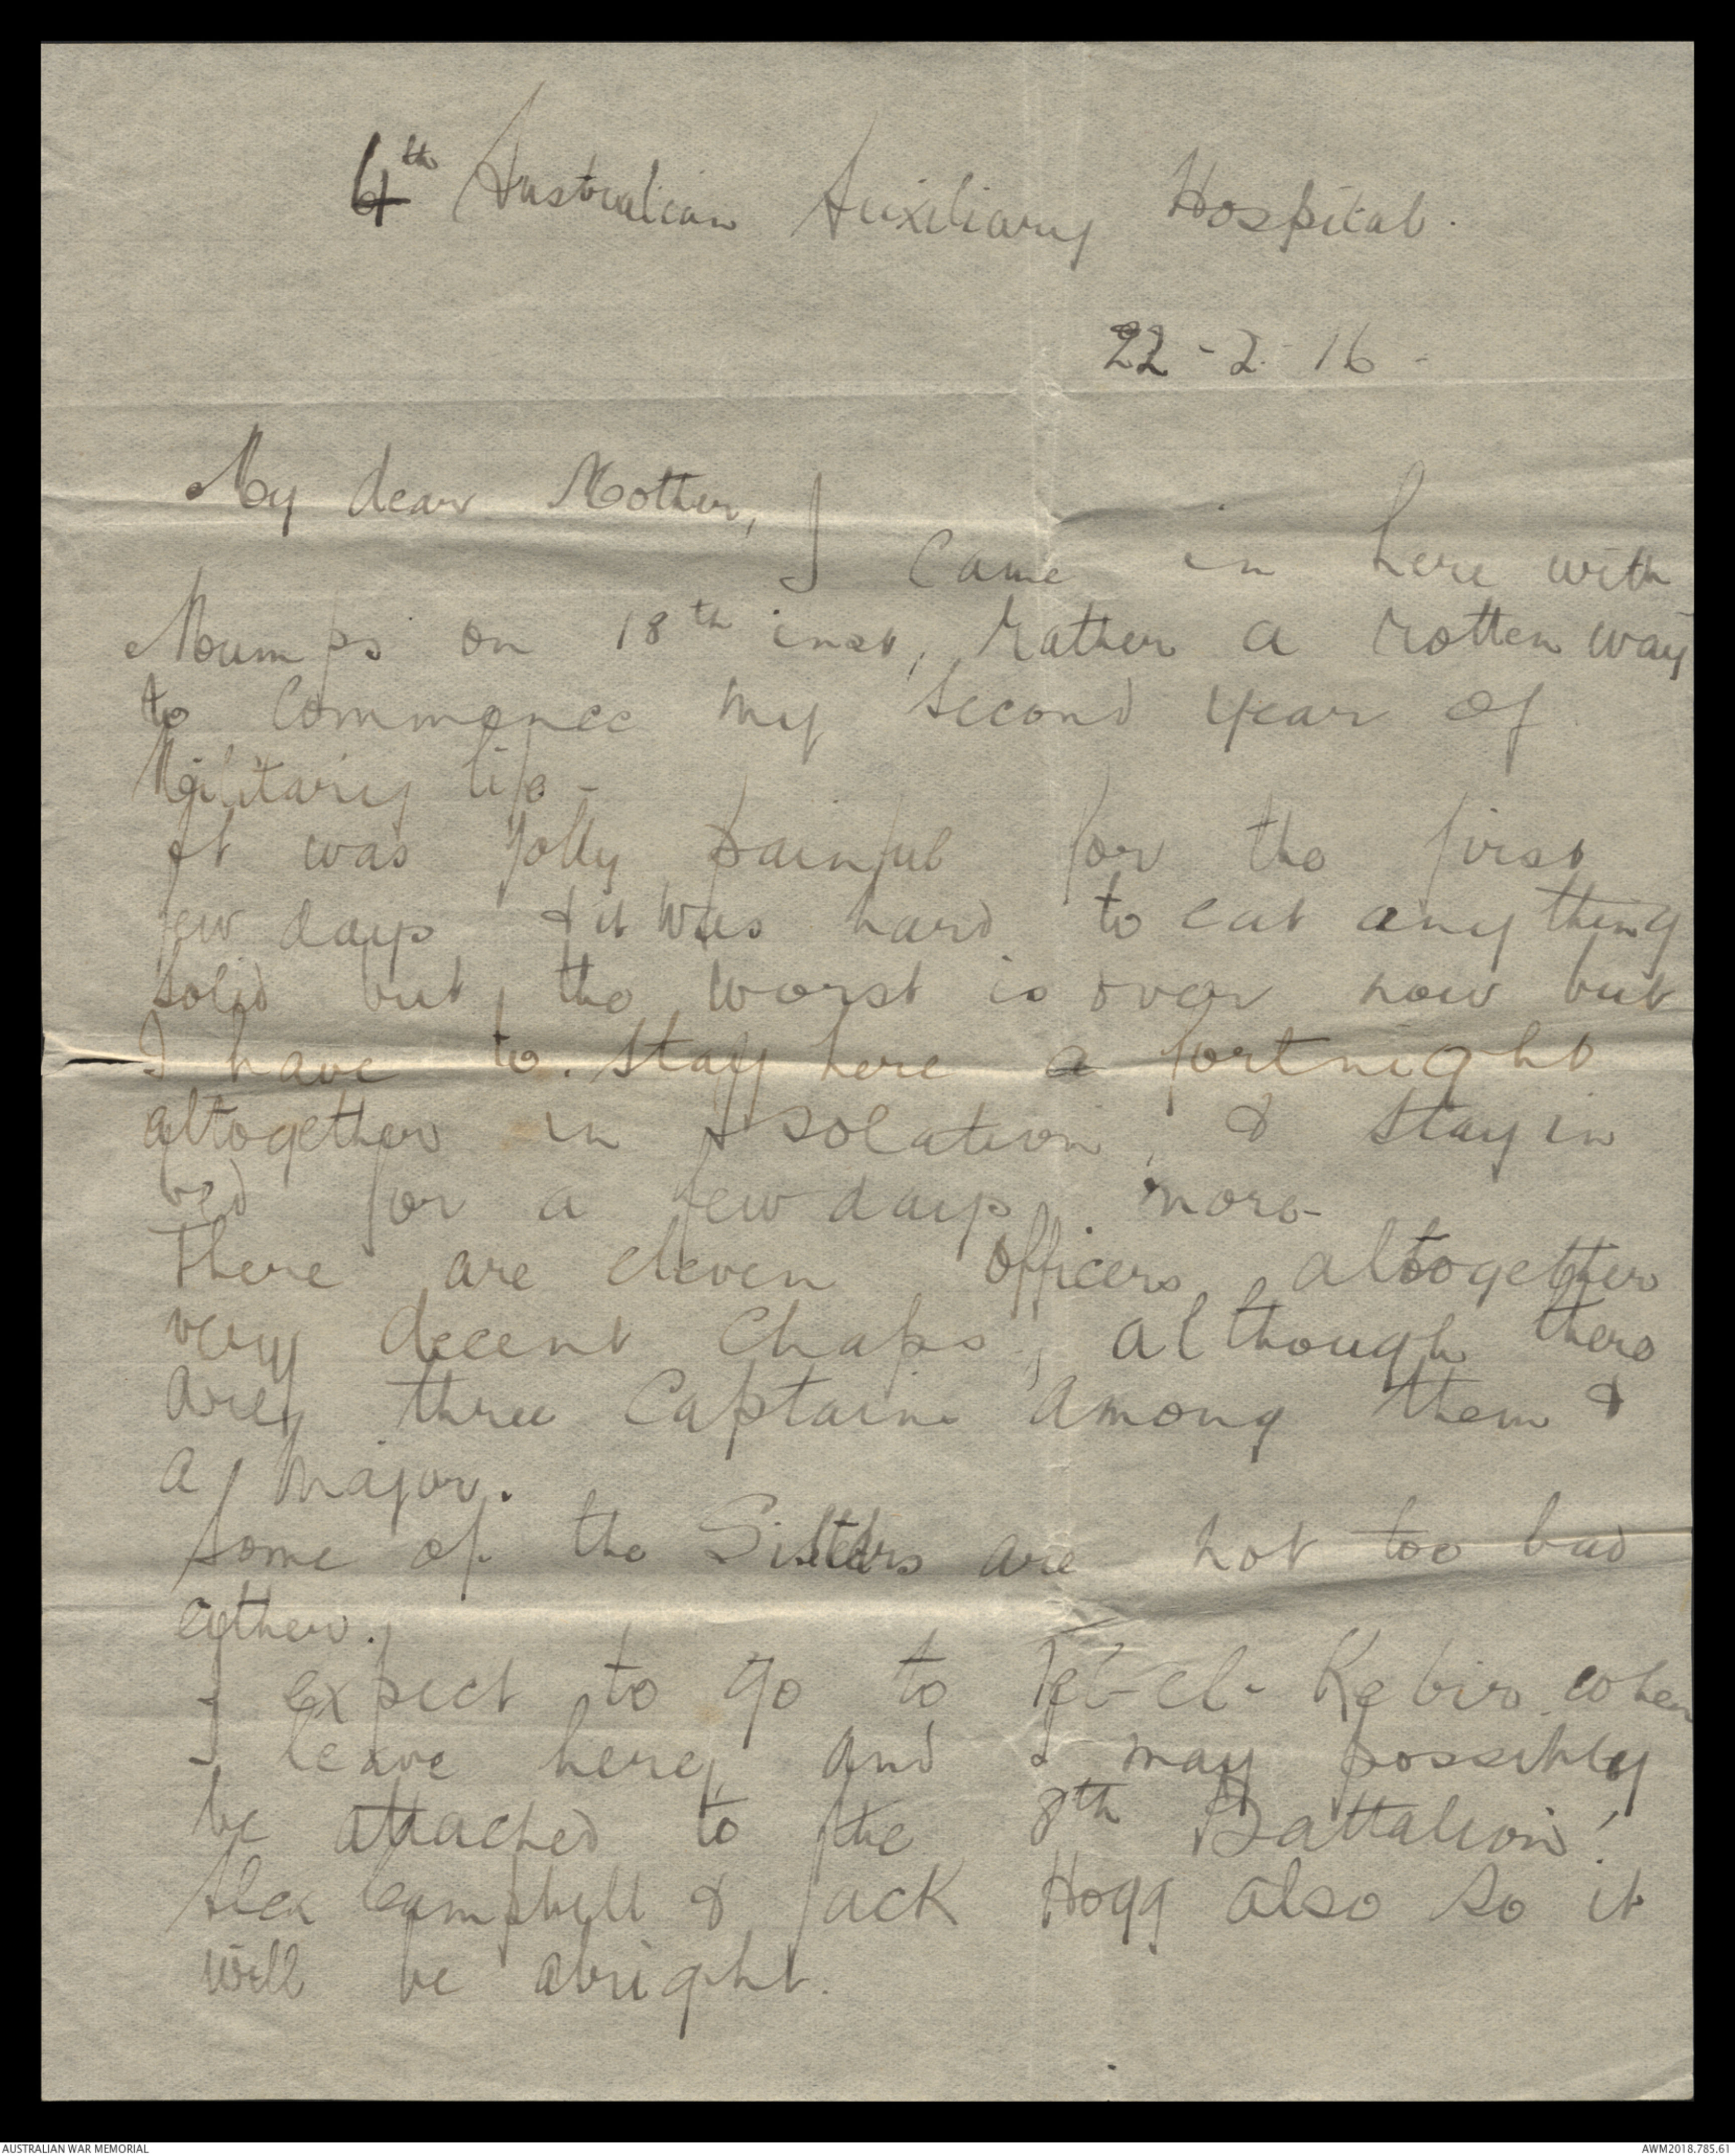 4th Australian Auxiliary Hospital.
22-2-16-
My dear Mother,
I came in here with
Mumps on 18th inst, rather a rotten way
to commence my second year of
Military life -
It was jolly painful for the first
few days & it was hard to eat anything
solid but the worst is over now but
I have to stay here a fortnight
altogether in Isolation, & stay in
bed for a few days more -
There are eleven officers altogether
very decent chaps, although there
are three Captains among them &
a Major.
Some of the Sisters are not too bad
eyther.
I expect to go to Tel-el-Kebir when
I leave here, and I may possibly
be attached to the 8th Battalion!
Alex Campbell & Jack Hogg also so it
will be alright.
AUSTRALIAN WAR MEMORIAL
AWM2018.785.61